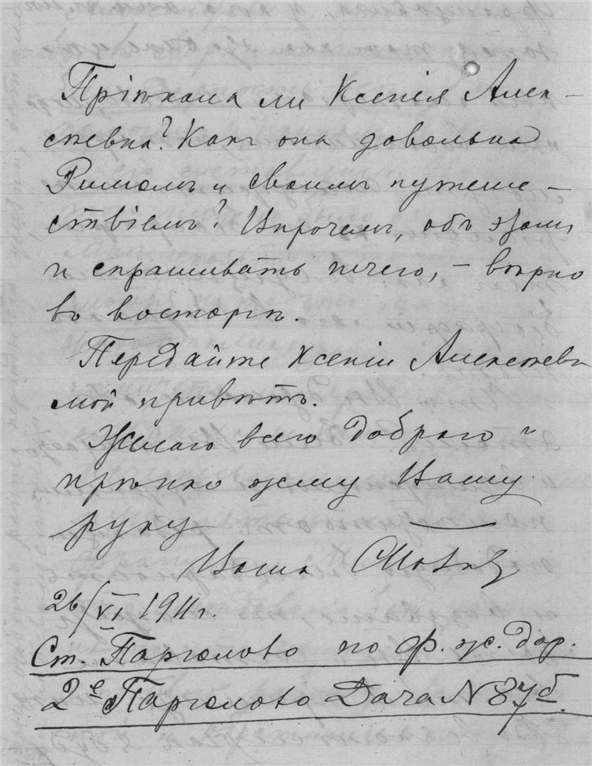 Пріѣхала ли Ксенія Алек-
сѣевна? Какъ она довольна
Римомъ и своимъ путеше-
ствіемъ? Впрочемъ, объ этомъ
и спрашивать нечего, – вѣрно
въ восторгѣ.
Передайте Ксеніи Алексѣевнѣ
мой привѣтъ.
Желаю всего добраго и
крѣпко жму Вашу
руку
Ваша
26/VI 1911 г.
Ст. Парголово по Ф. ж. дор.
2е Парголово Дача N 87б.